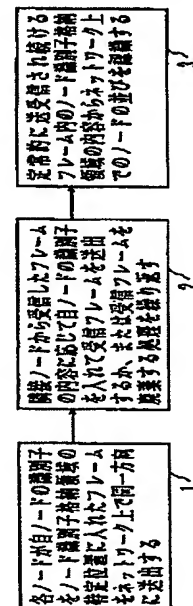 各ノードが自ノードの識別子
をノード識別子格納領域の
特定位置に入れたフレーム
をネットワーク上で同一方向
に送出する
1
隣接ノードから受信したフレーム
の内容に応じて自ノードの識別子
を入れて受信フレームを送出
するか、または受信フレームを
廃棄する処理を繰り返す
定常的に送受信され続ける
フレーム内のノード識別子格納
領域の内容からネットワーク上
でのノードの並びを認識する